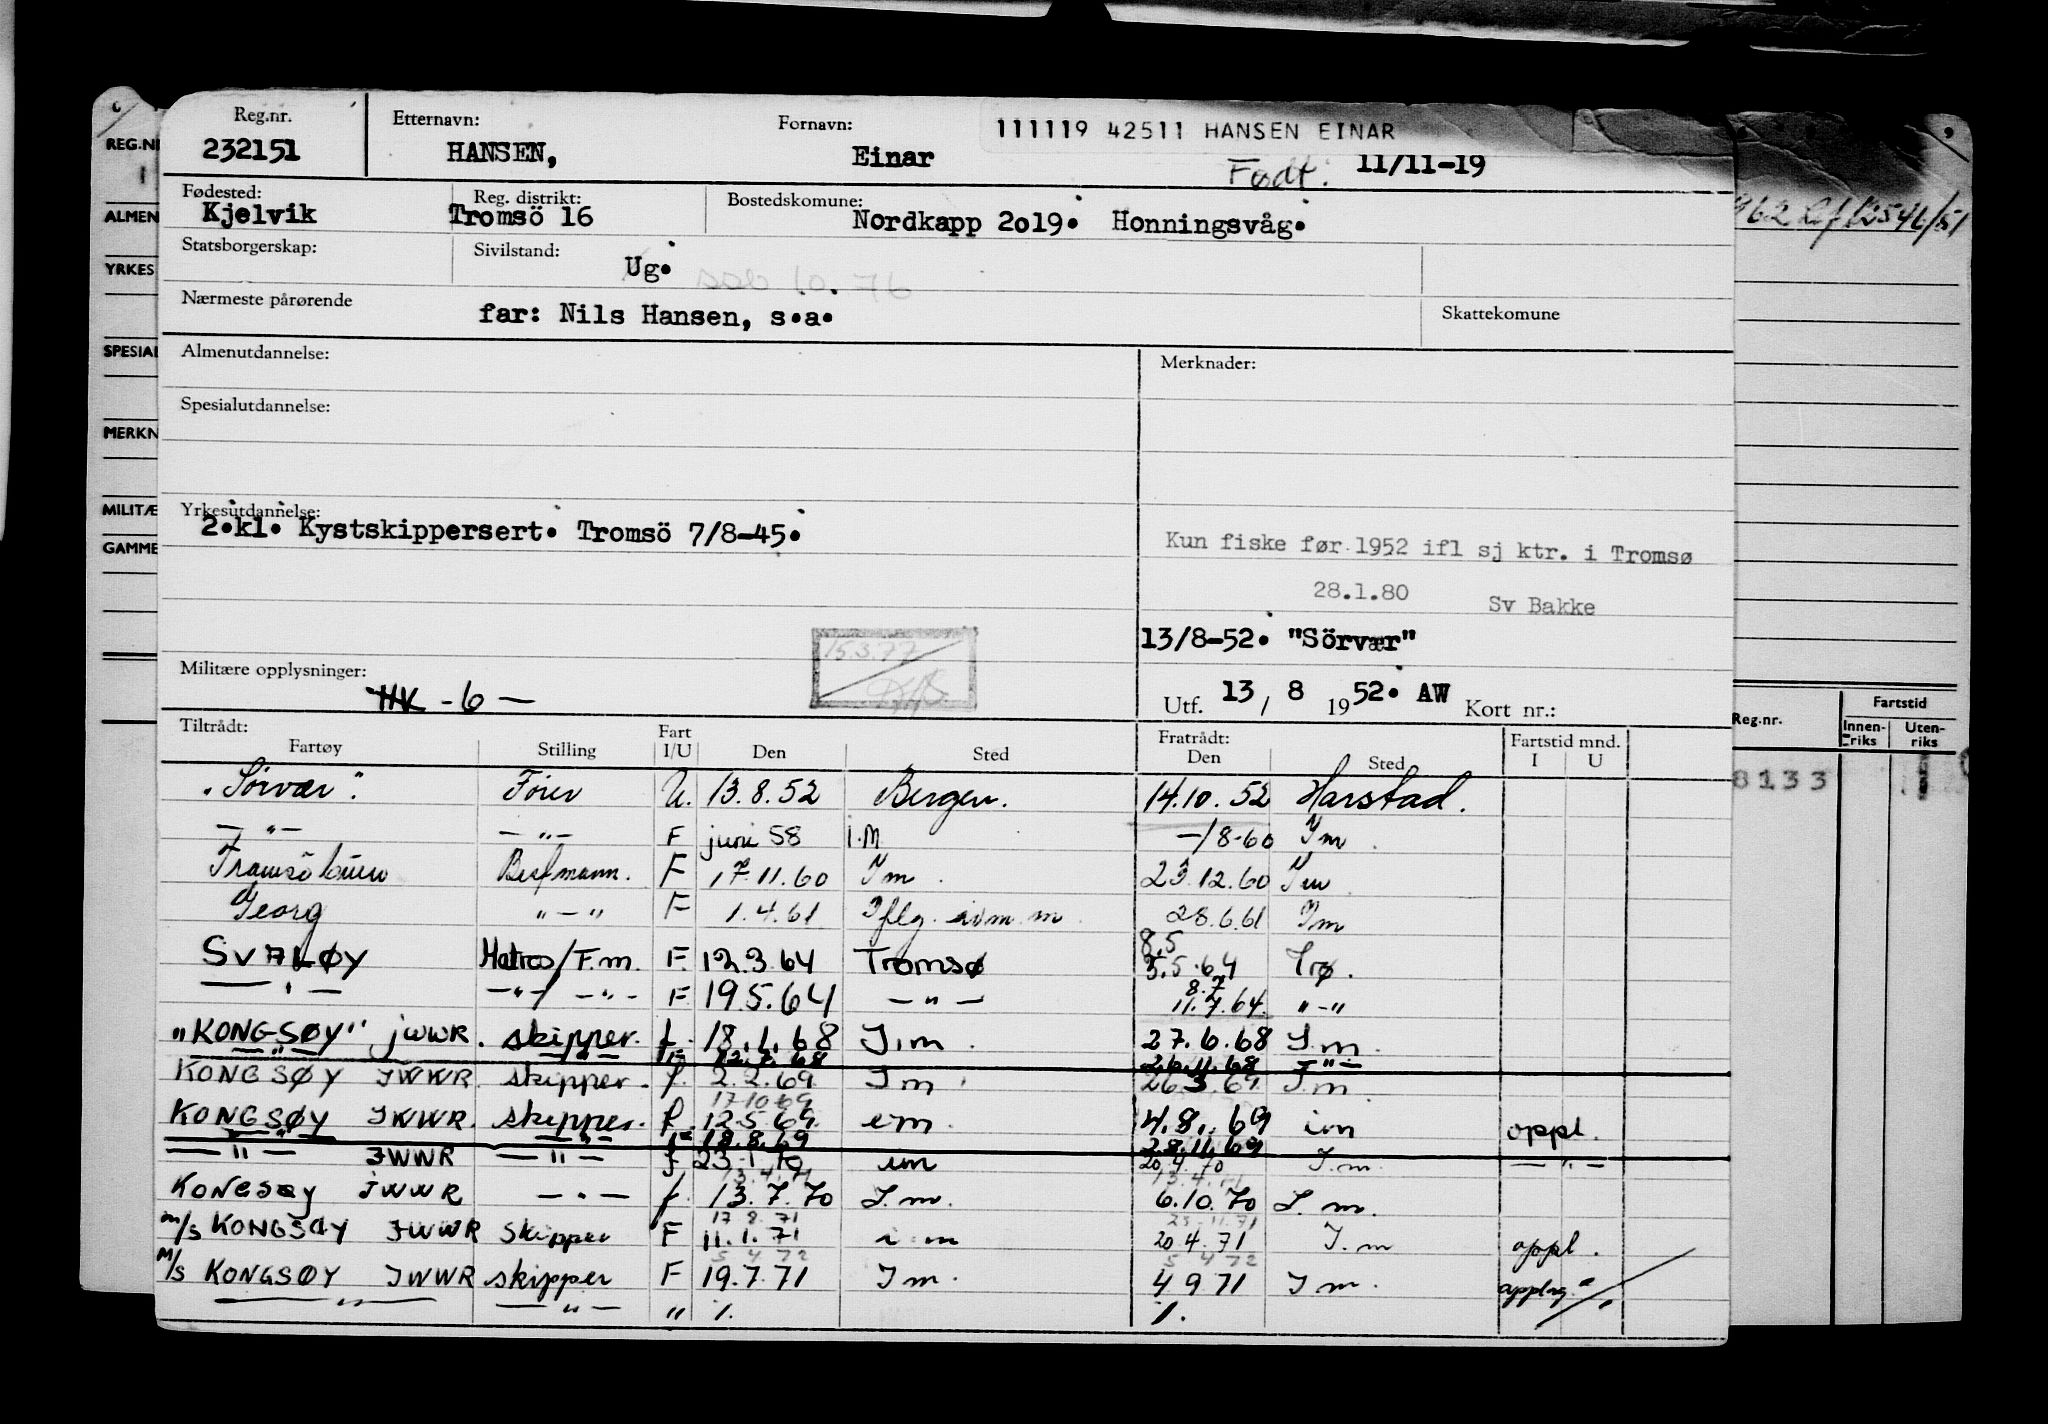 Reg.nr. Etternavn: Fornavn: 111119 42511 HANSEN EINAR
232151 HANSEN, Einar Født: 11/11-19
Fødested: Reg. distrikt: Bostedskomune:
Kjelvik Tromsö 16 Nordkapp 2o19. Honningsvåg.
Statsborgerskap: Sivilstand: Ug.
Nærmeste pårørende far: Nils Hansen, s.a. Skattekomune
Almenutdannelse: Merknader:
Spesialutdannelse:
Yrkesutdannelse:
2.kl. Kystskippersert. Tromsö 7/8-45.
Kun fiske før 1952 ifl sj ktr. i Tromsø
28.1.80 Sv Bakke
15.3.77
13/8-52. "Sörvær"
Militære opplysninger: HK - 6 —
Utf. 13 / 8 1952. AW Kort nr.:
Tiltrådt: Fart Fratrådt: Fartstid mnd.
Fartøy Stilling I/U Den Sted Den Sted I U
"Sörvær". U. 13.8.52 Bergen. 14.10.52 Harstad.
— " — — " — F juni 58 i.M —/8-60 Im.
F 17.11.60 Im. 23.12.60 Im
Georg " — " F 1.4.61 28.6.61 Im
8.5
SVALØY Matros/F.m. F. 12.3.64 Tromsø 5.5.64 Trø.
8.7
— " — — " — / — " — F 19.5.64 — " — 11.7.64. " — "
"KONGSØY" JWWR. skipper. f. 18.1.68 I.m. 27.6.68 I.m.
— " — — " — F 12.7.68 26.11.68 — " —
KONGSØY JWWR. skipper. f. 2.2.69 Im. 26.3.69. I.m.
17.10.69
KONGSØY JWWR. skipper. f. 12.5.69. em. 4.8.69 im oppl.
— " — — " — F 18.8.69 28.11.69
— " — JWWR — " — f 23.1.70 im 20.4.70 I.m. — " —
13.4.71 13.4.71
KONGSØY JWWR — " — f. 13.7.70 I.m. 6.10.70 I.m.
17.8.71 23-11.71
m/s KONGSØY JWWR Skipper F 11.1.71 i m 20.4.71 I.m oppl.
5 4 72 5 4 72
M/s KONGSØY JWWR skipper F 19.7.71 Im. 4 9 71 I m.
— " — — " — " %. %.
REG.N
ALMEN
YRKES
SPESIAL
MERKN
MILITÆ
GAMME
Reg.nr. Fartstid
Innen-riks Uten-riks
8133